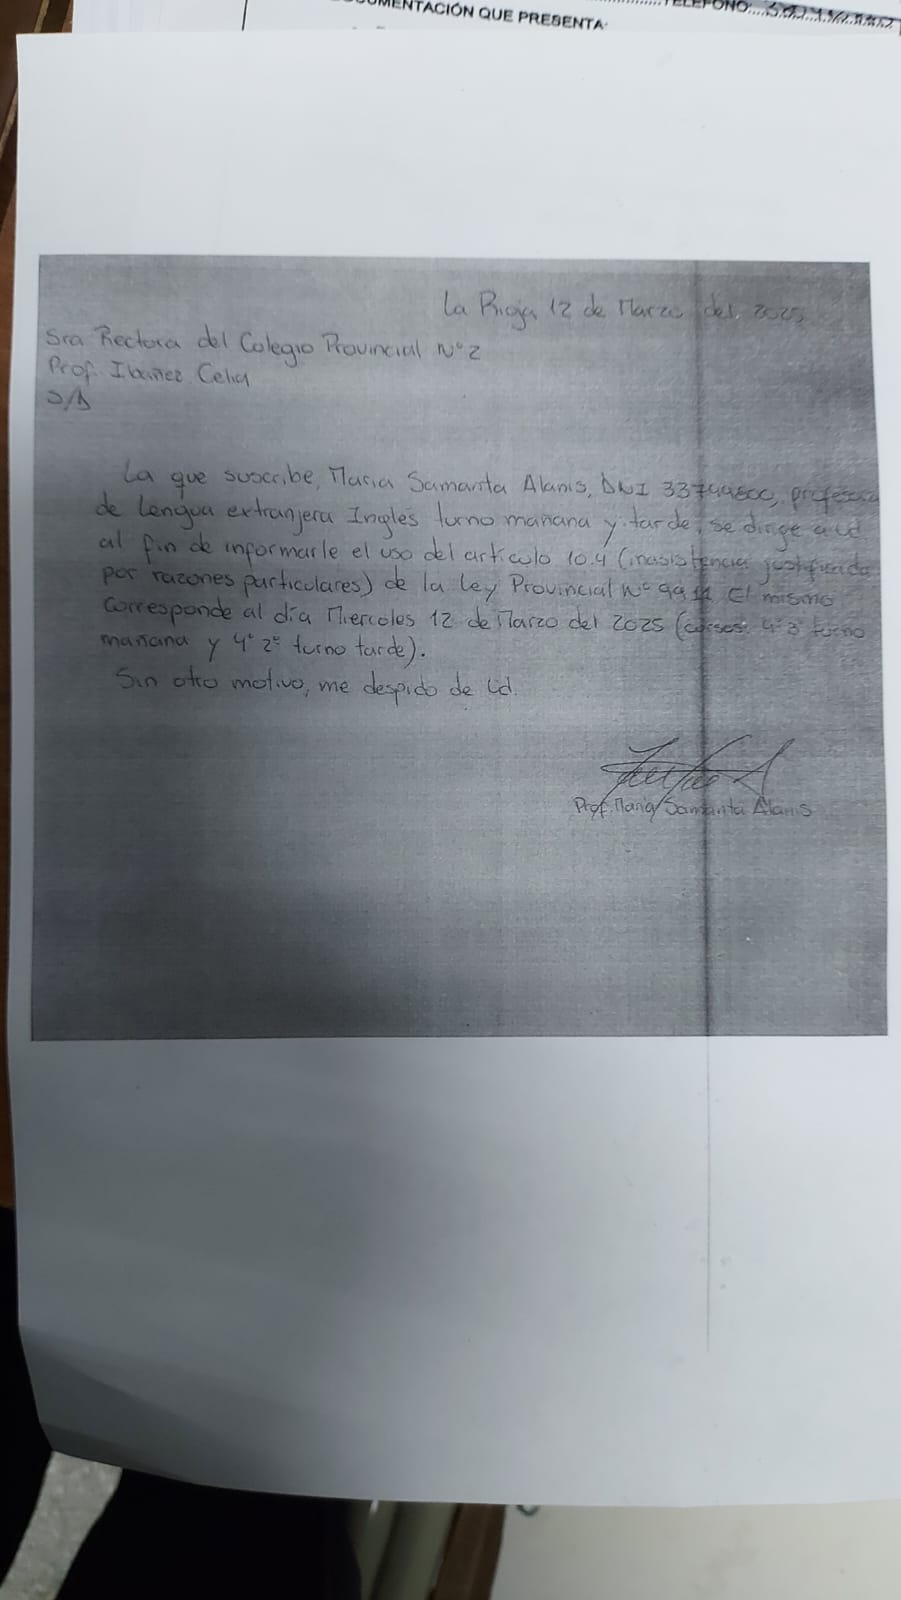 DOCUMENTACIÓN QUE PRESENTA:
TELÉFONO:
La Rioja 12 de Marzo del 2025
Sra Rectora del Colegio Provincial N° 2
Prof. Ibañez Celia
S/D
La que suscribe, Maria Samanta Alanis, DNI 33744800, profesora
de Lengua extranjera Ingles turno mañana y tarde, se dirige a Ud
al fin de informarle el uso del artículo 10.4 (inasistencia justificada
por razones particulares) de la Ley Provincial N° 9911. El mismo
corresponde al día Miercoles 12 de Marzo del 2025 (cursos: 4° 3° turno
mañana y 4° 2° turno tarde).
Sin otro motivo, me despido de Ud.
Prof. Maria Samanta Alanis